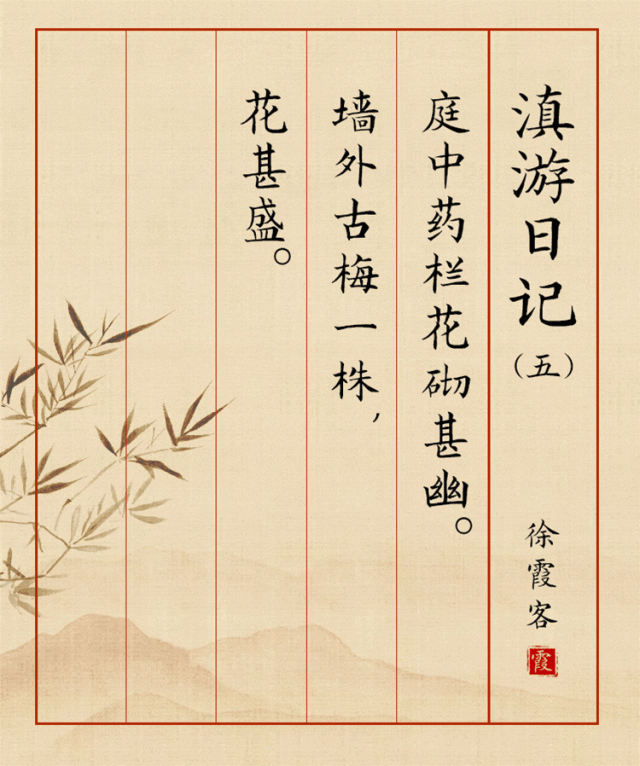 滇游日记
（五）
徐霞客
霞
庭中药栏花砌甚幽。
墙外古梅一株，
花甚盛。